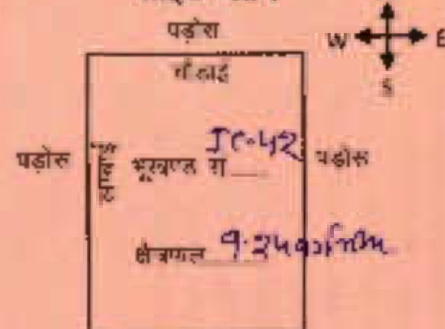 पड़ोस
W E
S
चौड़ाई
पड़ोस लम्बाई भूखण्ड सं JC-42 पड़ोस
क्षेत्रफल 9.24 वर्गमी